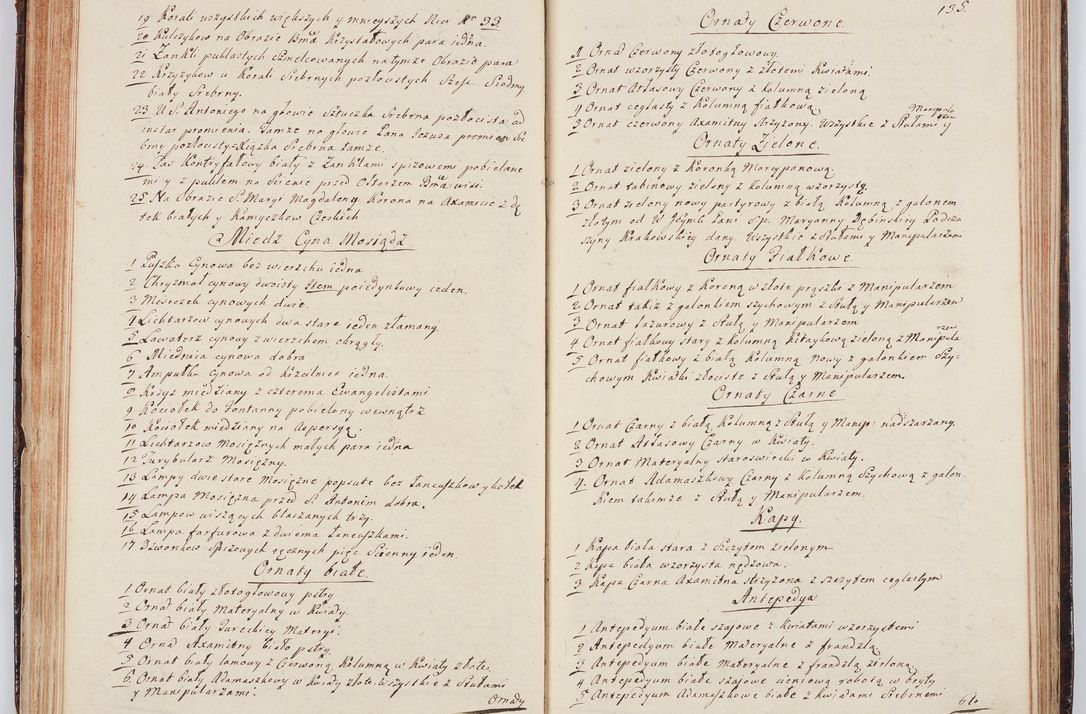 19 Korali wszystkich większych y mnieyszych Nici Nro 33.
20 Kulczykow na Obrazie Bma Krzyształowych para iedna.
21 Zankli publastych Szmelcowanych na tymże Obrazie para
22 Krzyżykow u Korali Srebrnych pozłocistych Sześć. Siodmy
biały Srebrny.
23 U S. Antoniego na głowie Sztuczka Srebrna pozłocista ad
instar promienia. Tamże na głowie Pana Jezusa promien Sre
brny pozłocisty Xiązka Srebrna tamze.
24. Pas Kontryfałowy biały z Zanklami spizowemi pobielane
mi y z puklem na Scienie przed Ołtarzem Bma wisi.
25 Na Obrazie S. Maryi Magdaleny Korona na Axamicie z Pę
tek białych y Kamyczkow Czeskich
Miedź Cyna Mosiądz
1 Puszka Cynowa bez wierzchu iedna
2 Chryzmał cynowy dwoisty Item poiedynkowy ieden.
3 Miseczek cynowych dwie.
4 Lichtarzow cynowych dwa stare ieden złamany.
5 Lawaterz cynowy z wierzchem okrągły.
6 Miednica cynowa dobra
7 Ampułka Cynowa od Krzcielnice iedna.
8 Krzyż miedziany z czterema Ewangelistami
9 Kociołek do Fontanny pobielony wewnątrz
10 Kociołek miedziany na Aspersyą.
11 Lichtarzow Mosiężnych małych para iedna
12 Turybularz Mosiężny.
13 Lampy dwie stare Mosiężne popsute bez Łancuszkow y kołek
14 Lampa Mosiężna przed S. Antonim dobra.
15 Lampow wiszących blaszanych trzy.
16 Lampa farfurowa z dwiema Łancuszkami.
17 Dzwonkow Spiżowych ręcznych pięć Scienny ieden.
Ornaty białe.
1 Ornat biały złotogłowowy pstry
2 Ornat biały Materyalny w Kwiaty.
3 Ornat biały Tureckiey Materyi.
4 Ornat Axamitny biało pstry.
5 Ornat biały lamowy z Czerwoną Kolumną w Kwiaty złote.
6. Ornat biały Adamaszkowy w Kwiaty złote. Wszystkie z Stułami
y Manipularzami.
Ornaty
135.
Ornaty Czerwone.
1 Ornat Czerwony złotogłowowy.
2 Ornat wzorzysty Czerwony z złotemi Kwiatami.
3 Ornat Atłasowy Czerwony z kolumną zieloną
4 Ornat ceglasty z Kolumną fiałkową
5 Ornat czerwony Axamitny Strzyżony. Wszystkie z Stułami y Manipula
rzem
Ornaty Zielone.
1 Ornat zielony z Koronką Marcypanową.
2 Ornat tabinowy zielony z kolumną wzorzystą.
3 Ornat zielony nowy partyrowy z białą Kolumną z galonem
złotym od W Jeymć Pani S.p. Maryanny Dębinskiey Podcza
szyny Krakowskiey dany. Wszystkie z Stułami y Manipularzami
Ornaty Fiałkowe.
1 Ornat fiałkowy z Koroną w złote prążki z Manipularzem
2 Ornat także z galonkiem szychowym z Stułą y Manipularzem
3 Ornat Lazurowy z Stułą y Manipularzem
4 Ornat fiałkowy stary z kolumną Kitaykową zieloną z Manipula
rzem
5 Ornat fiałkowy z białą Kolumną nowy z galonkiem Szy-
chowym Kwiatki złociste z Stułą y Manipularzem.
Ornaty Czarne
1 Ornat Czarny z białą Kolumną z Stułą y Manip: nadszarzany.
2 Ornat Atłasowy Czarny w Kwiaty.
3 Ornat Materyalny staroswiecki w Kwiaty.
4. Ornat Adamaszkowy Czarny z kolumną Szychową z galon
kiem takimze z Stułą y Manipularzem.
Kapy.
1 Kapa biała stara z Szczytem zielonym
2 Kapa biała wzorzysta nędzowa.
3 Kapa Czarna Axamitna strzyżona z szczytem ceglastym
Antepedya
1 Antepedyum białe szajowe z Kwiatami wzorzystemi
2 Antepedyum białe Materyalne z frandzlą
3 Antepedyum białe Materyalne z frandzlą zieloną
4 Antepedyum białe szajowe cieniową robotą w bryty
5 Antepedyum Adamaszkowe białe z kwiatami Srebrnemi
6to